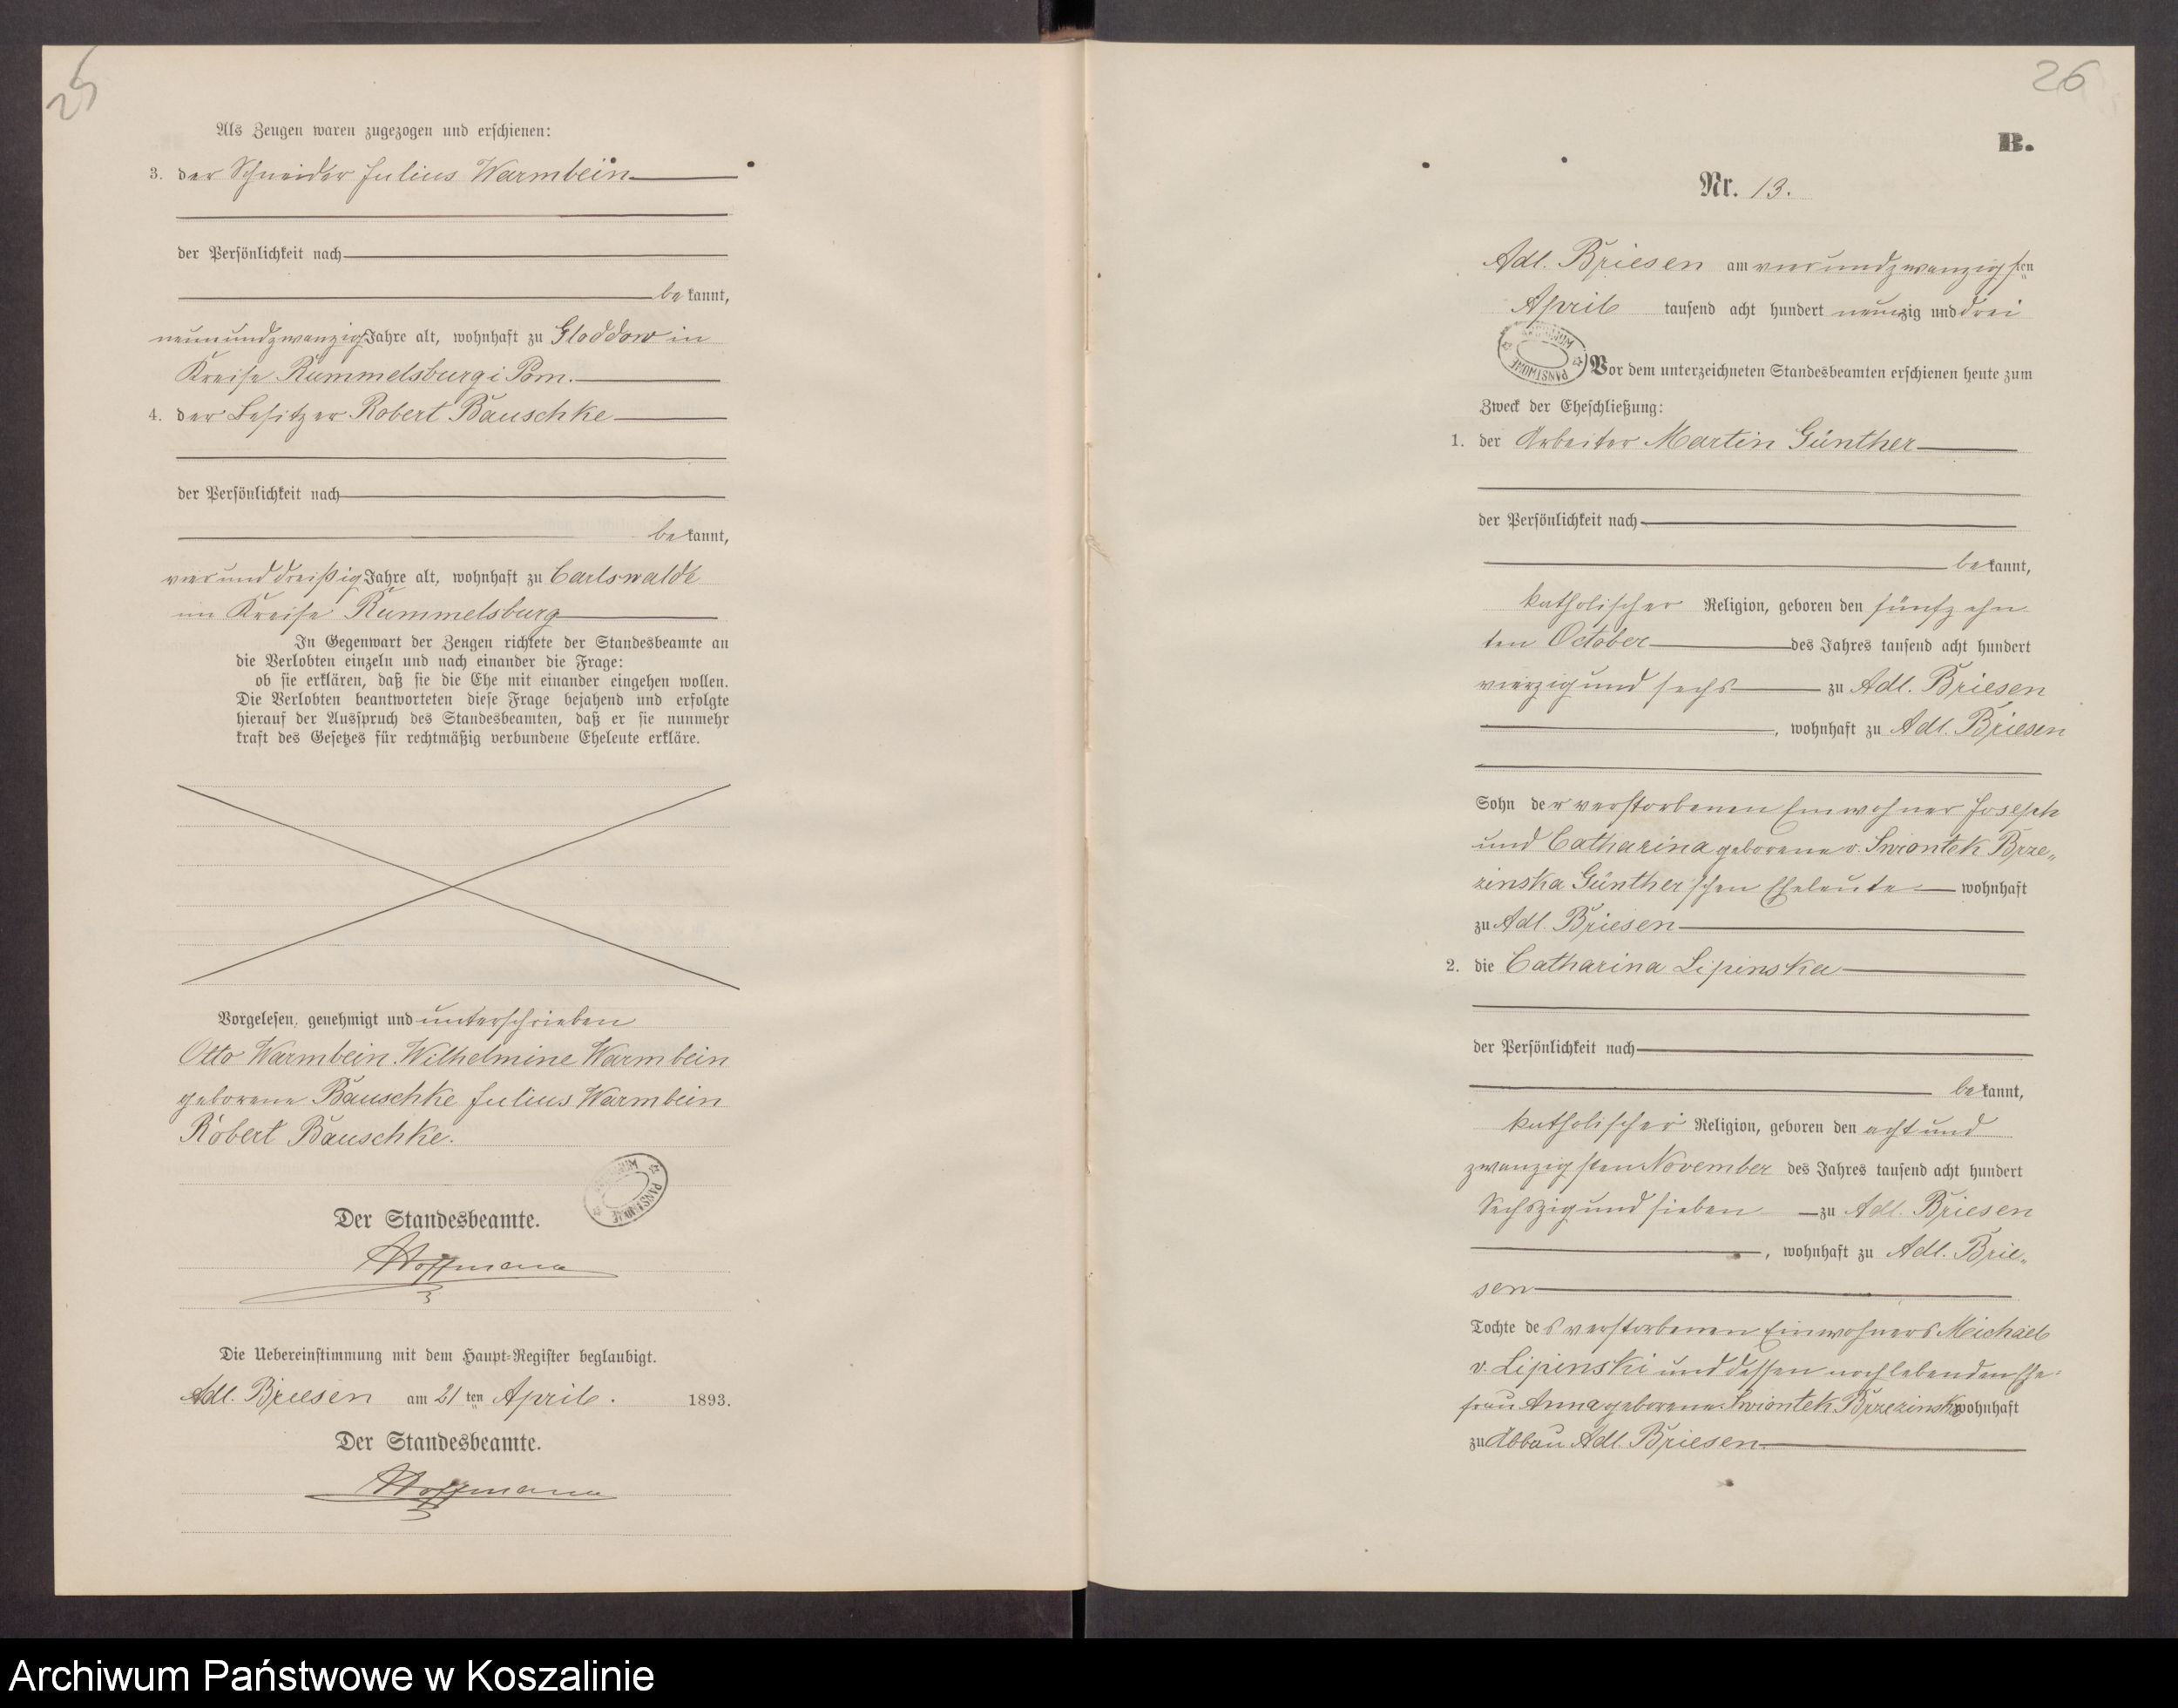 25
Als Zeugen waren zugezogen und erschienen:
3. der Schneider Julius Warmbein
der Persönlichkeit nach
bekannt,
neunundzwanzig Jahre alt, wohnhaft zu Gloddow in
Kreise Rummelsburg i Pom.
4. der Besitzer Robert Bauschke
der Persönlichkeit nach
bekannt,
vierunddreißig Jahre alt, wohnhaft zu Carlswalde
im Kreise Rummelsburg
In Gegenwart der Zeugen richtete der Standesbeamte an
die Verlobten einzeln und nach einander die Frage:
ob sie erklären, daß sie die Ehe mit einander eingehen wollen.
Die Verlobten beantworteten diese Frage bejahend und erfolgte
hierauf der Ausspruch des Standesbeamten, daß er sie nunmehr
kraft des Gesetzes für rechtmäßig verbundene Eheleute erkläre.
Vorgelesen, genehmigt und unterschrieben
Otto Warmbein. Wilhelmine Warmbein
geborene Bauschke Julius Warmbein
Robert Bauschke.
Der Standesbeamte.
Hoffmann
Die Uebereinstimmung mit dem Haupt-Register beglaubigt.
Adl. Briesen am 21ten April. 1893.
Der Standesbeamte.
Hoffmann
26
B.
Nr. 13.
Adl. Briesen am vierundzwanzigsten
April tausend acht hundert neunzig und drei
Vor dem unterzeichneten Standesbeamten erschienen heute zum
Zweck der Eheschließung:
1. der Arbeiter Martin Günther
der Persönlichkeit nach
bekannt,
katholischer Religion, geboren den fünfzehn
ten October des Jahres tausend acht hundert
vierzig und sechs zu Adl. Briesen
, wohnhaft zu Adl. Briesen
Sohn der verstorbenen Einwohner Joseph
und Catharina geborene v. Swiontek Brze„
zinska Günther'schen Eheleute wohnhaft
zu Adl. Briesen
2. die Catharina Lipinska
der Persönlichkeit nach
bekannt,
katholischer Religion, geboren den acht und
zwanzigsten November des Jahres tausend acht hundert
Sechszig und sieben zu Adl. Briesen
, wohnhaft zu Adl. Brie„
sen
Tochte des verstorbenen Einwohners Michael
v. Lipinski und dessen noch lebenden Ehe:
frau Anna geborene Swiontek Brzezinska wohnhaft
zu Abbau Adl. Briesen
Archiwum Państwowe w Koszalinie